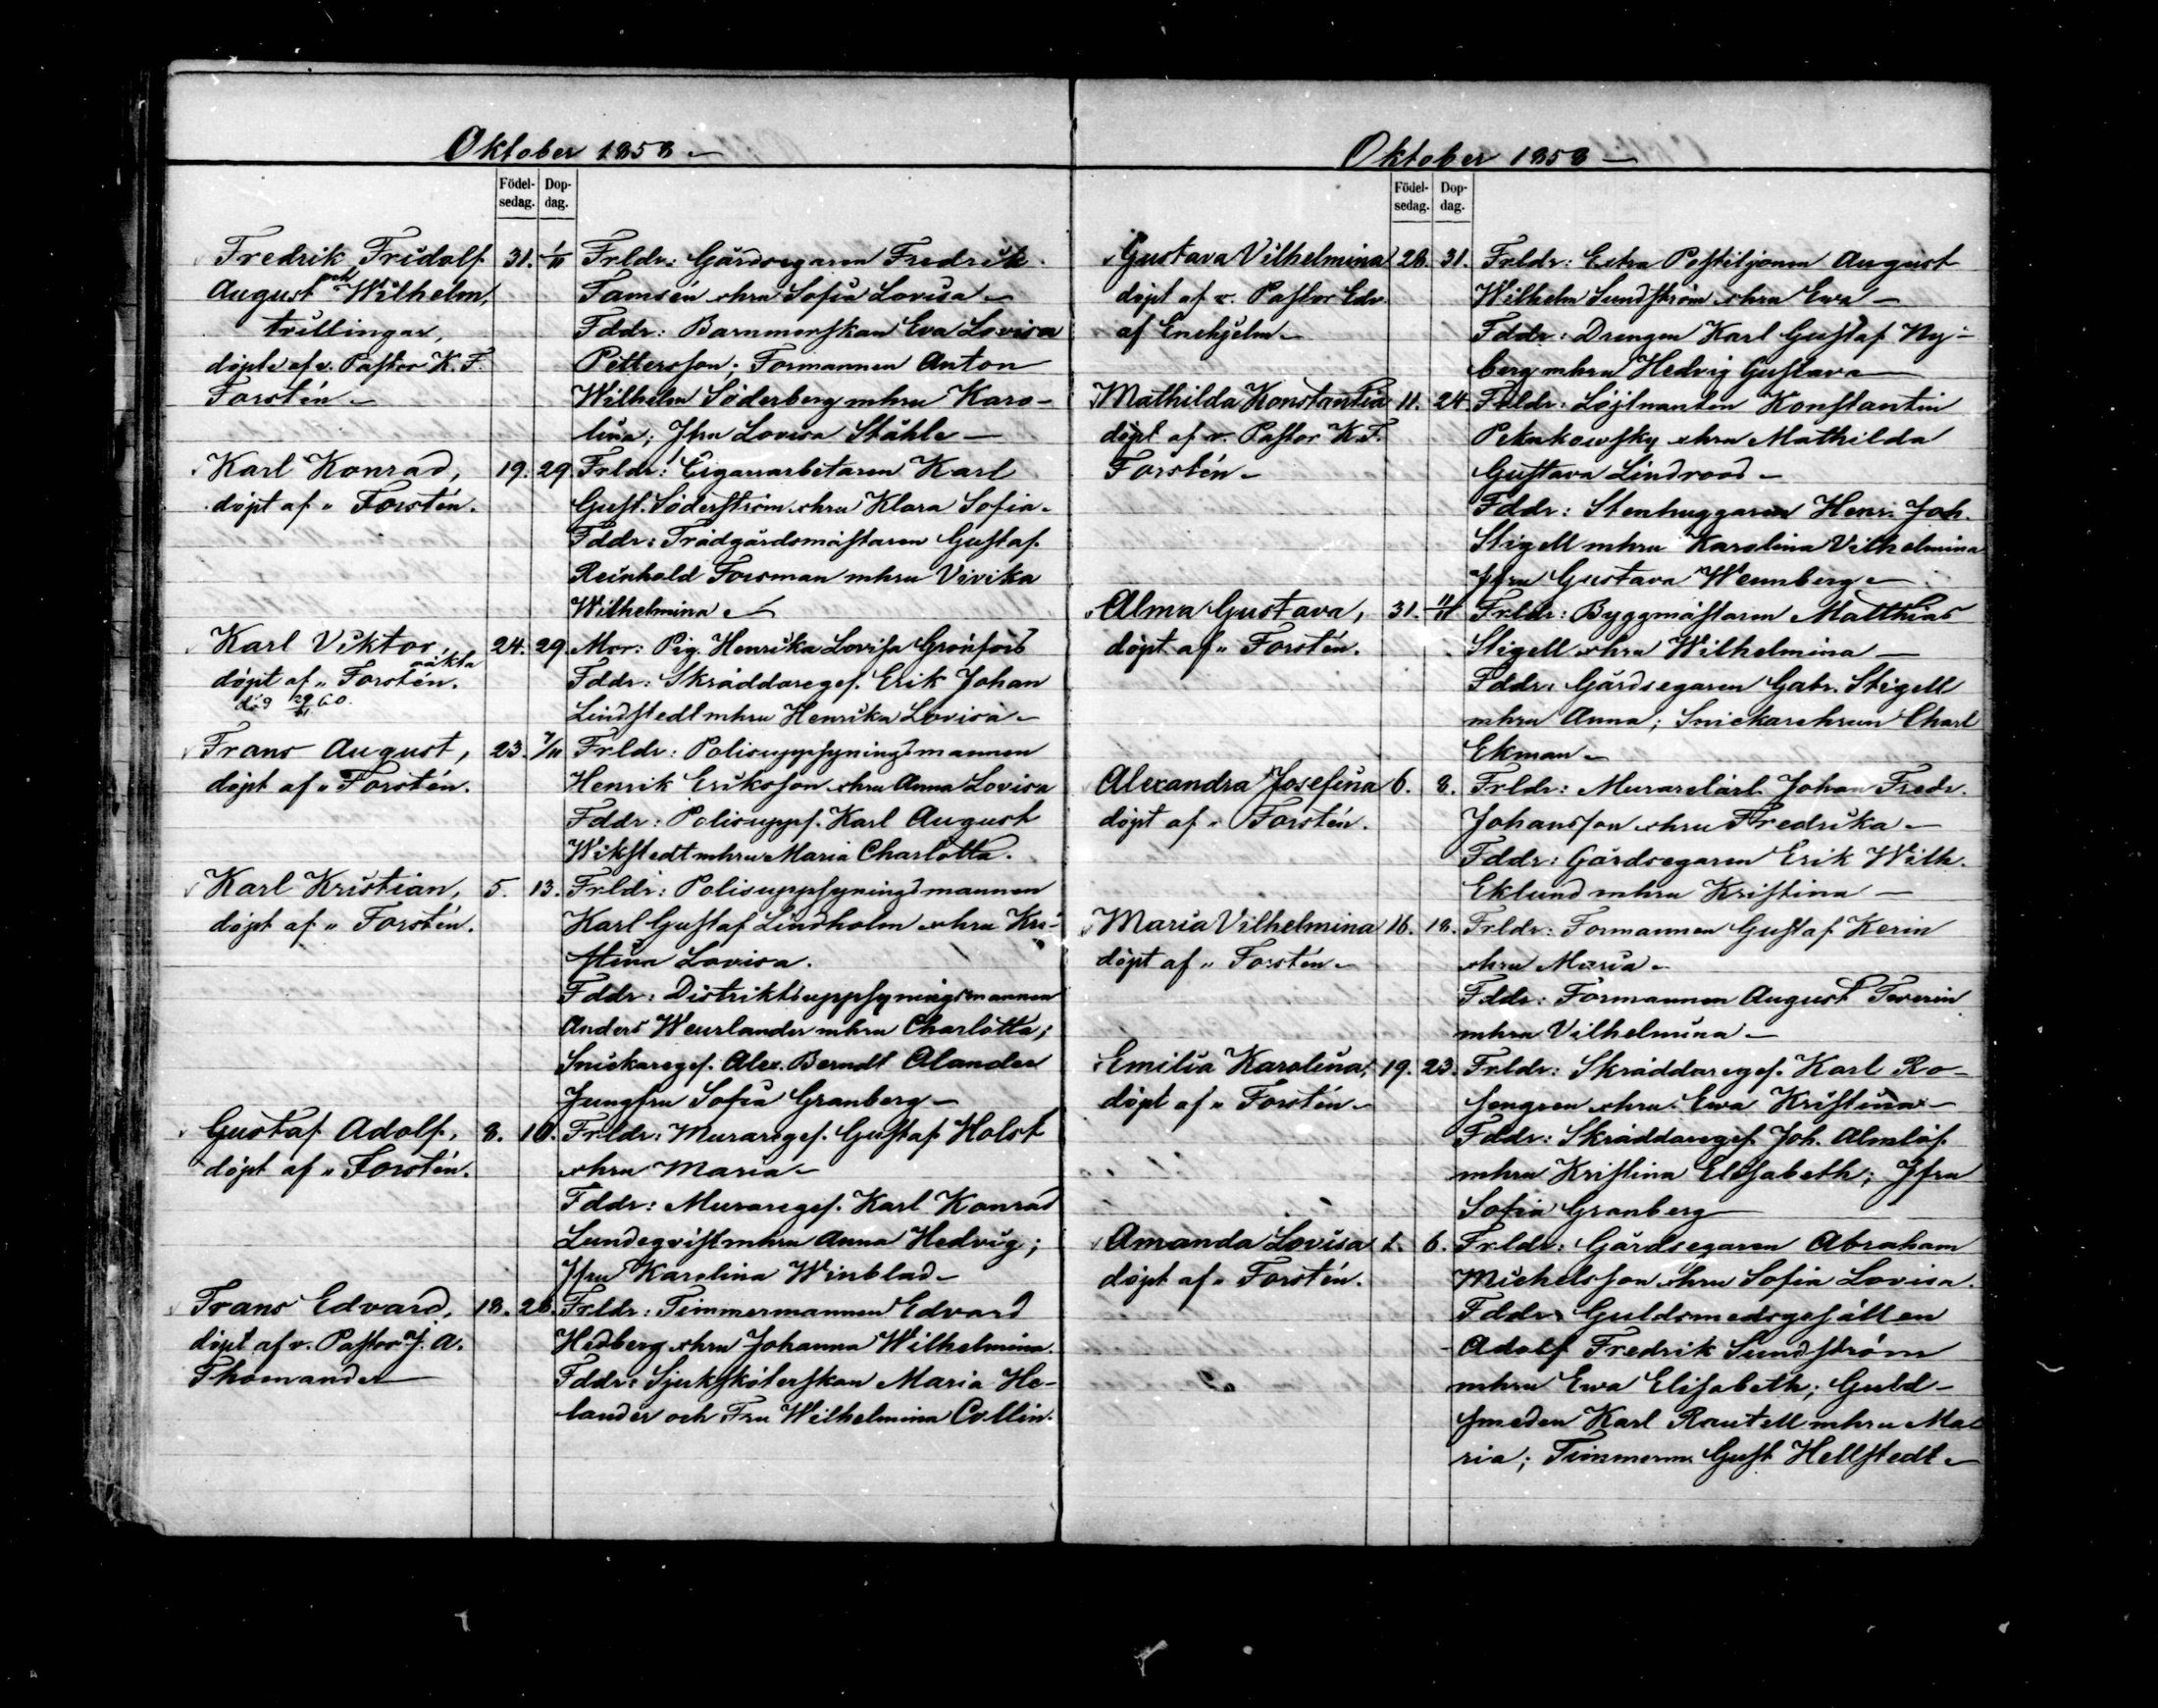 Oktober 1858 –
Födel-
sedag.
Dop-
dag.
Fredrik Fridolf
August och Wilhelm,
trillingar,
döpte af v. Pastor K. F.
Forstén –
31. 1/11
Frldr: Gårdsegaren Fredrik
Tamsén o hru Sofia Lovisa –
Fddr: Barnmorskan Eva Lovisa
Pettersson; Formannen Anton
Wilhelm Söderberg m hru Karo-
lina; Jfru Lovisa Ståhle –
Karl Konrad,
döpt af „ Forstén.
19. 29
Frldr: Cigarrarbetaren Karl
Gust. Söderström o hru Klara Sofia –
Fddr: Trädgårdsmästaren Gustaf
Reinhold Forsman m hru Vivika
Wilhelmina –
Karl Viktor, oäkta
döpt af „ Forstén.
dög 29/11 60.
24. 29
Mor: Pig. Henrika Lovisa Grönfors
Fddr: Skräddareges. Erik Johan
Lindstedt m hru Henrika Lovisa –
Frans August,
döpt af „ Forstén.
23. 7/11
Frldr: Polisuppsyningsmannen
Henrik Eriksson o hru Anna Lovisa
Fddr: Polisupps. Karl August
Wikstedt m hru Maria Charlotta.
Karl Kristian,
döpt af „ Forstén.
5. 13.
Frldr: Polisuppsyningsmannen
Karl Gustaf Lindholm o hru Kri-
stina Lovisa.
Fddr: Distriktsuppsyningsmannen
Anders Weurlander m hru Charlotta;
Snickareges. Alex. Berndt Alander
Jungfru Sofia Granberg –
Gustaf Adolf,
döpt af „ Forstén.
8. 10.
Frldr: Murareges. Gustaf Holst
o hru Maria –
Fddr: Murareges. Karl Konrad
Lundeqvist m hru Anna Hedvig;
Jfru Karolina Winblad –
Frans Edvard,
döpt af v. Pastor J. A.
Thomander
18. 28.
Frldr: Timmermannen Edvard
Hedberg o hru Johanna Wilhelmina.
Fddr: Sjukskötersкan Maria He-
lander och Fru Wilhelmina Collin.
Oktober 1858 –
Födel-
sedag.
Dop-
dag.
Gustava Vilhelmina
döpt af v. Pastor Edv.
af Enehjelm –
28. 31.
Frldr: Extra Postiljonen August
Wilhelm Sundström o hru Ewa –
Fddr: Drengen Karl Gustaf Ny-
berg m hru Hedvig Gustava –
Mathilda Konstantia
döpt af v. Pastor K. F.
Forstén –
11. 24
Frldr: Löjtnanten Konstantin
o hru Mathilda
Gustava Lindroos –
Fddr: Stenhuggaren Henr. Joh.
Stigell m hru Karolina Vilhelmina
Jfru Gustava Wennberg –
Alma Gustava,
döpt af „ Forstén.
31. 11/11
Frldr: Byggmästaren Matthias
Stigell o hru Wilhelmina –
Fddr: Gårdsegaren Gabr. Stigell
m hru Anna; Snickarehrun Charl
Ekman –
Alexandra Josefina
döpt af „ Forstén.
6. 8.
Frldr: Murarelärl. Johan Fredr.
Johansson o hru Fredrika –
Fddr: Gårdsegaren Erik Wilh.
Eklund m hru Kristina –
Maria Vilhelmina
döpt af „ Forstén –
16. 18.
Frldr: Formannen Gustaf Kerin
o hru Maria –
Fddr: Formannen August Twerin
m hru Vilhelmina –
Emilia Karolina,
döpt af „ Forstén –
19. 23.
Frldr: Skräddareges. Karl Ro-
sengren o hru Ewa Kristina –
Fddr: Skräddareges. Joh. Almlöf
m hru Kristina Elisabeth; Jfru
Sofia Granberg
Amanda Lovisa
döpt af „ Forstén.
6.
Frldr: Gårdsegaren Abraham
Michelsson o hru Sofia Lovisa.
Fddr: Guldsmedsgesällen
Adolf Fredrik Sundström
m hru Ewa Elisabeth; Guld-
smeden Karl Rautell m hru Ma-
ria; Timmerm. Gust Hellstedt –